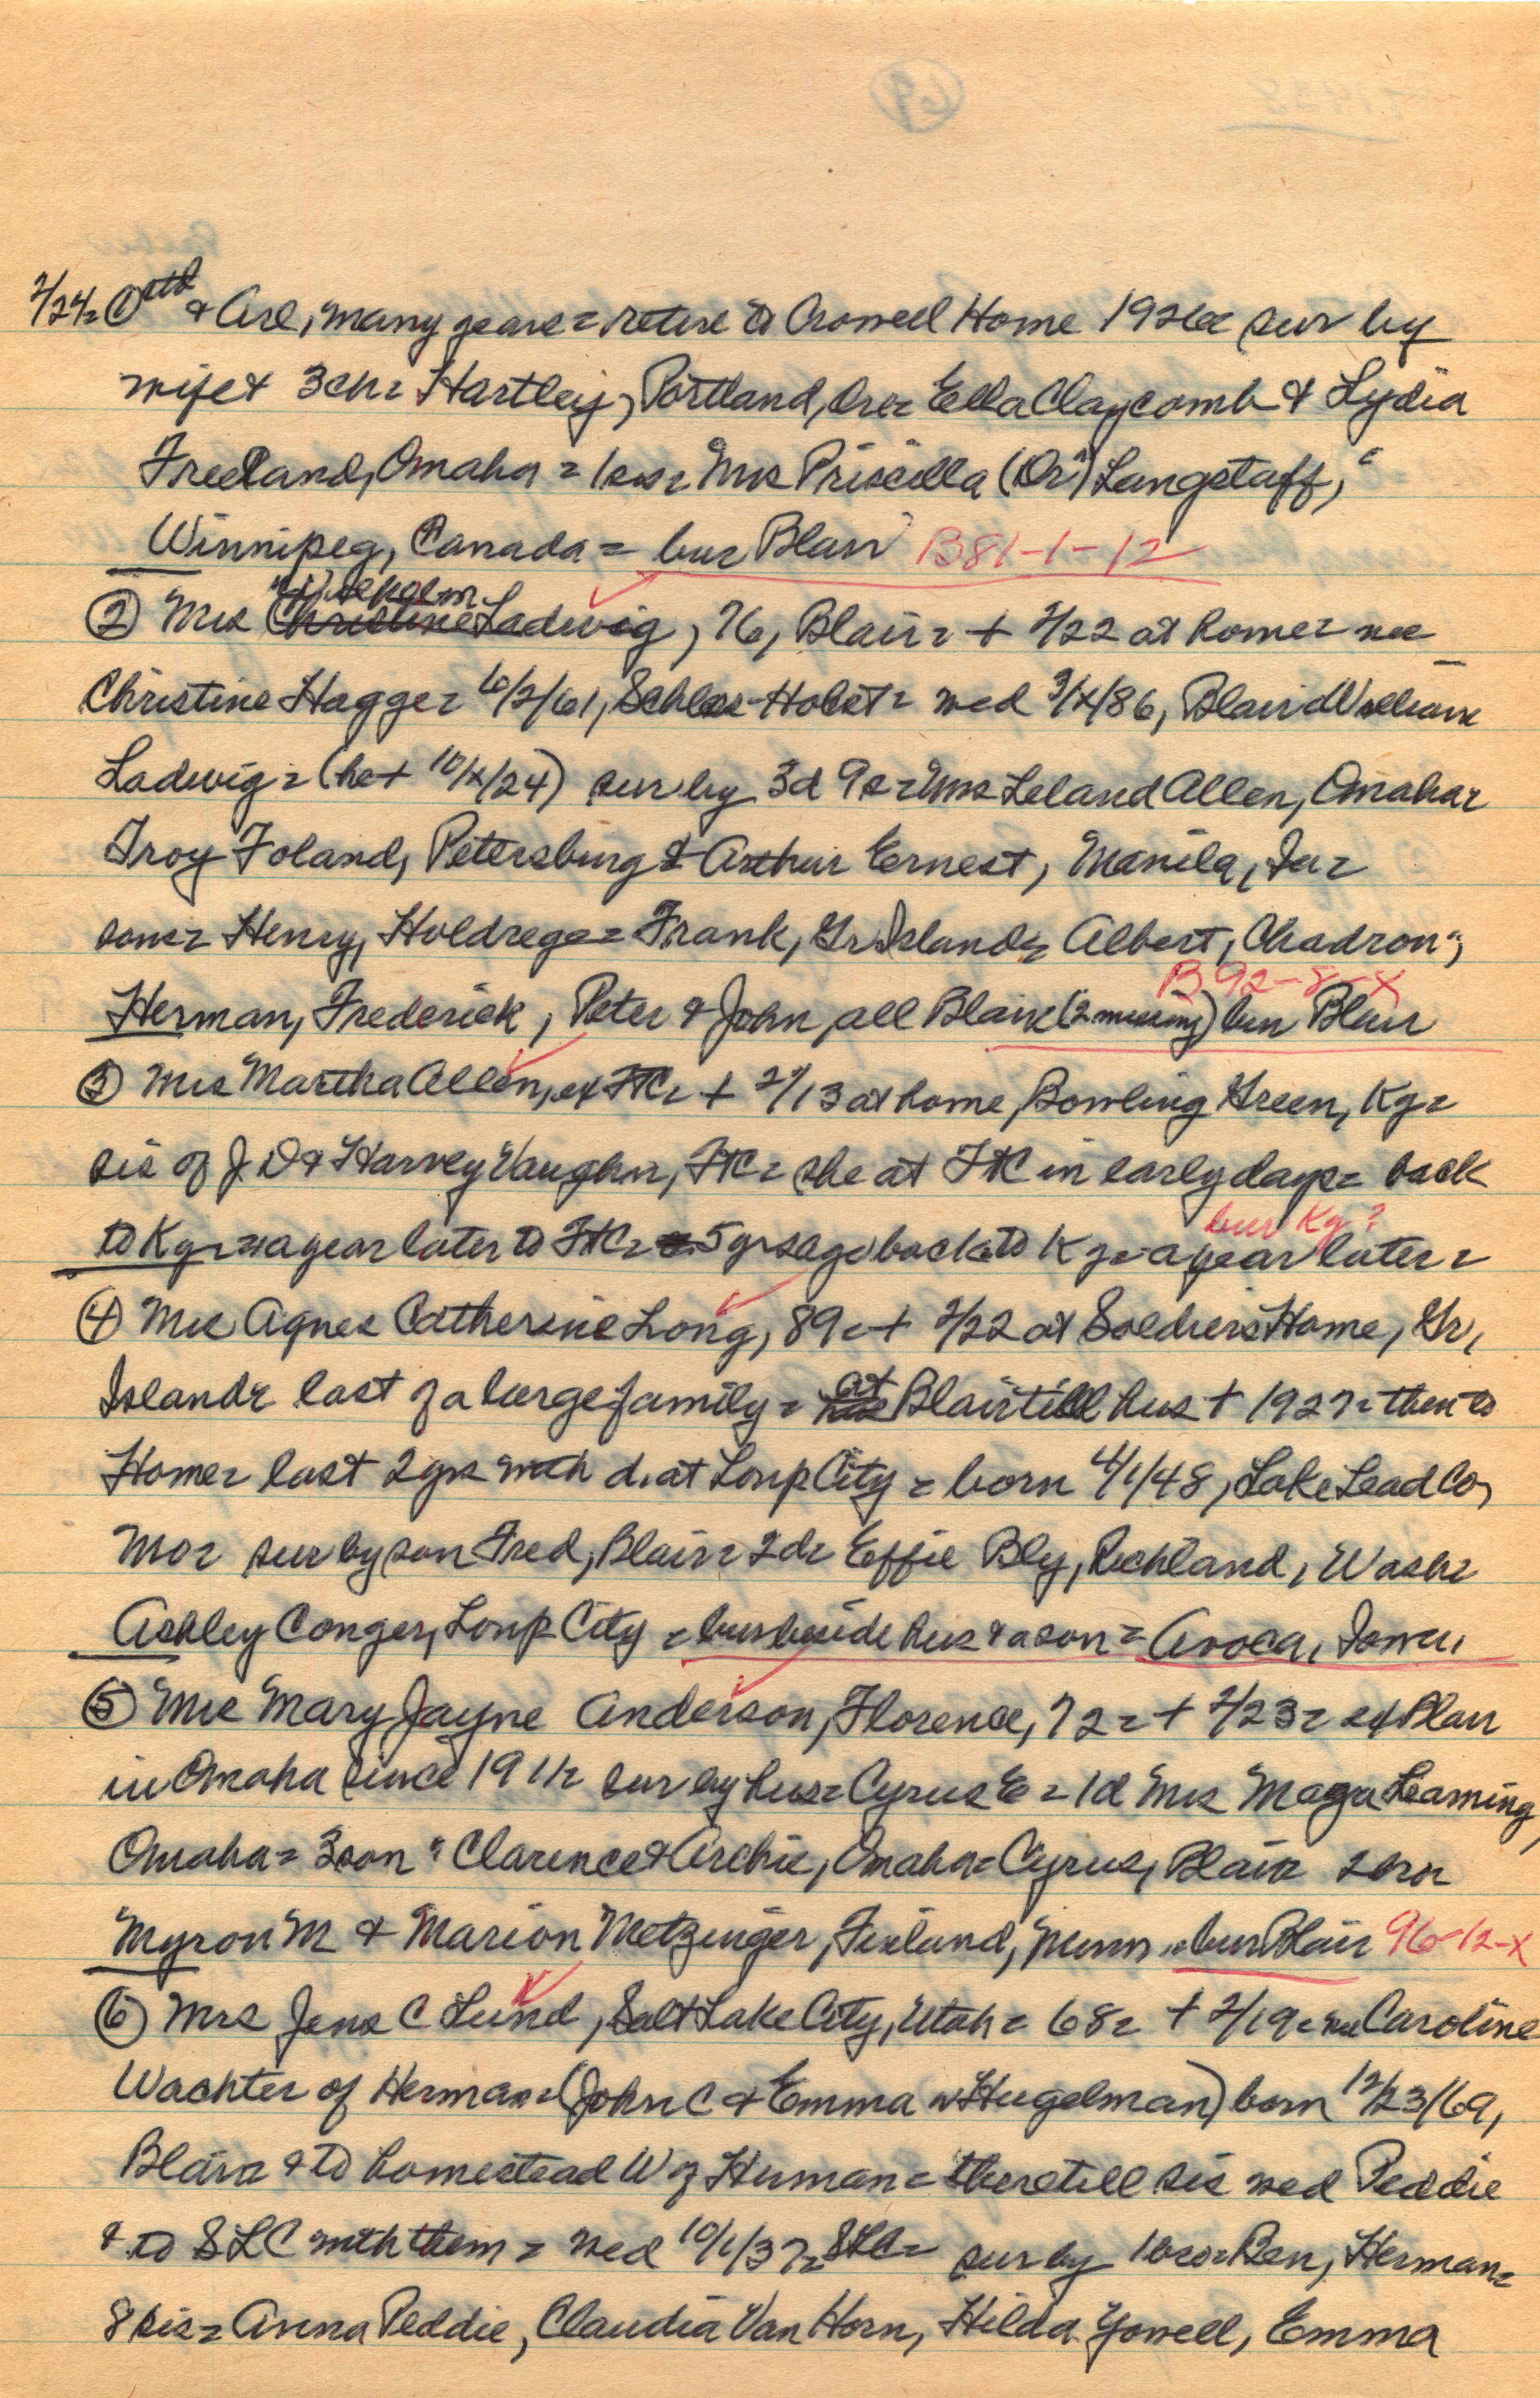 2/24= ① & Arl, many years = retire to Crowell Home 1926 = sur by
wife & 3 ch = Hartley, Portland, Ore = Ella Claycomb & Lydia
Freeland, Omaha = 1 sis = Mrs Priscilla (Dr) Langstaff,
Winnipeg, Canada = bur Blair B81-1-12
② Mrs Wilhelm Ladwig, 76, Blair = + 2/22 at home = nee
Christine Hagge = 6/2/61, Schles-Holst = wed 3/x/86, Blair William
Ladwig = (he + 10/x/24) sur by 3d 9s = Mrs Leland Allen, Omaha =
Troy Foland, Petersburg & Arthur Ernest, Manila, Ia =
sons = Henry, Holdrege = Frank, Gr Island = Albert, Chadron,
Herman, Frederick, Peter & John, all Blair (2 missing) bur Blair B92-8-x
③ Mrs Martha Allen, ex FtC = + 2/13 at home, Bowling Green, Ky =
sis of J D & Harvey Vaughn, FtC = she at FtC in early days = back
to Ky = a year later to FtC = 5 yrs ago back to Ky = a year later = bur Ky?
④ Mrs Agnes Catherine Long, 89 = + 2/22 at Soldiers Home, Gr,
Island = last of a large family = at Blair till hus + 1927 = then to
Home = last 2 yrs with d. at Loup City = born 4/1/48, Lake Lead Co,
Mo = sur by son Fred, Blair = 2d = Effie Bly, Richland, Wash =
Ashley Conger, Loup City = bur beside hus & a son = Avoca, Iowa,
⑤ Mrs Mary Jayne Anderson, Florence, 72 = + 2/23 = ex Blair
in Omaha since 1911 = sur by hus = Cyrus E = 1d Mrs Leaming,
Omaha = 3 son = Clarence & Archie, Omaha = Cyrus, Blair 2 bro
Myron M & Marion Metzinger, Finland, Minn = bur Blair 96-12-x
⑥ Mrs Jens C Lund, Salt Lake City, Utah = 68 = + 2/19 = nee Caroline
Wachter of Herman = (John C & Emma Hugelman) born 12/23/69,
Blair & to homestead W of Herman = there till sis wed Peddie
& to SLC with them = wed 10/1/37 = SLC = sur by 1 bro = Ben, Herman =
8 sis = Anna Peddie, Claudia Van Horn, Hilda Yowell, Emma